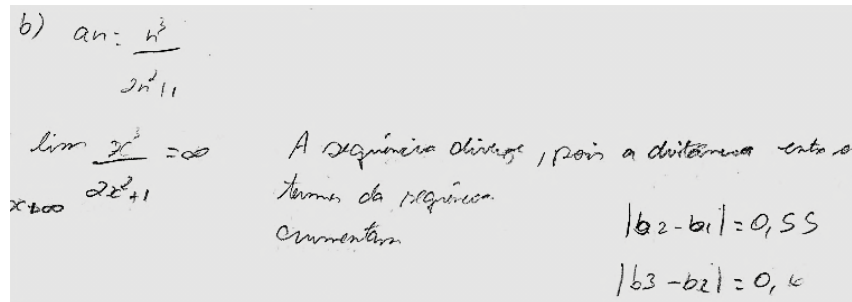 b) an = n³ / 2n²+1
lim x→∞ x³ / 2x²+1 = ∞
A sequência diverge, pois a distância entre o
termos da sequência
aumentam
|b2-b1| = 0,55
|b3-b2| = 0,